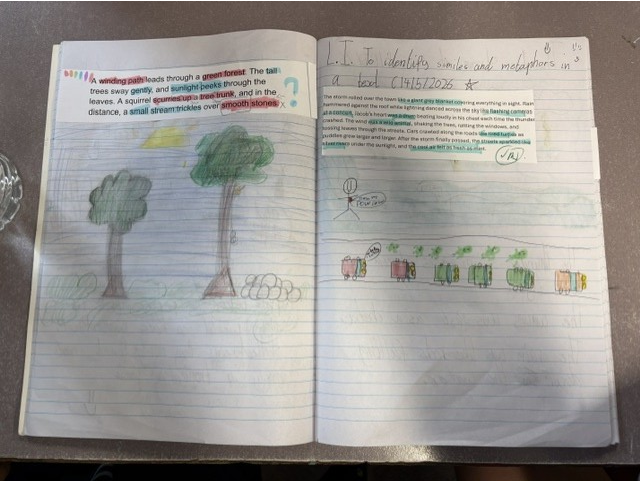 A winding path leads through a green forest. The tall
trees sway gently, and sunlight peaks through the
leaves. A squirrel scurries up a tree trunk, and in the
distance, a small stream trickles over smooth stones.
?
L.I. To identify similes and metaphors in
a text (14/5/2026
The storm rolled over the town like a giant grey blanket covering everything in sight. Rain
hammered against the roof while lightning danced across the sky like flashing cameras
at a concert. Jacob's heart was a drum beating loudly in his chest each time the thunder
crashed. The wind was a wild animal, shaking the trees, rattling the windows, and
tossing leaves through the streets. Cars crawled along the roads like tired turtles as
puddles grew larger and larger. After the storm finally passed, the streets sparkled like
under the sunlight, and the cool air felt as fresh as mint.